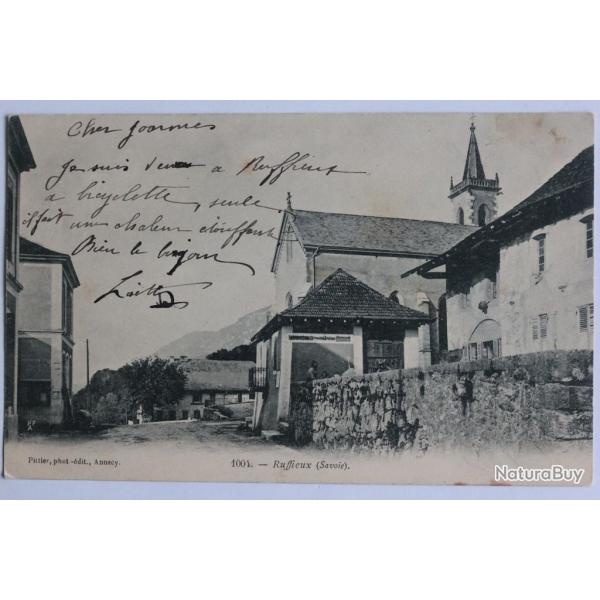 Cher Joannes
Je suis venue a Ruffieux
a bicyclette, seule
il fait un chaleur étouffant
Bien le bonjour
Pittier, phot.-édit., Annecy.
1004. — Ruffieux (Savoie).
NaturaBuy